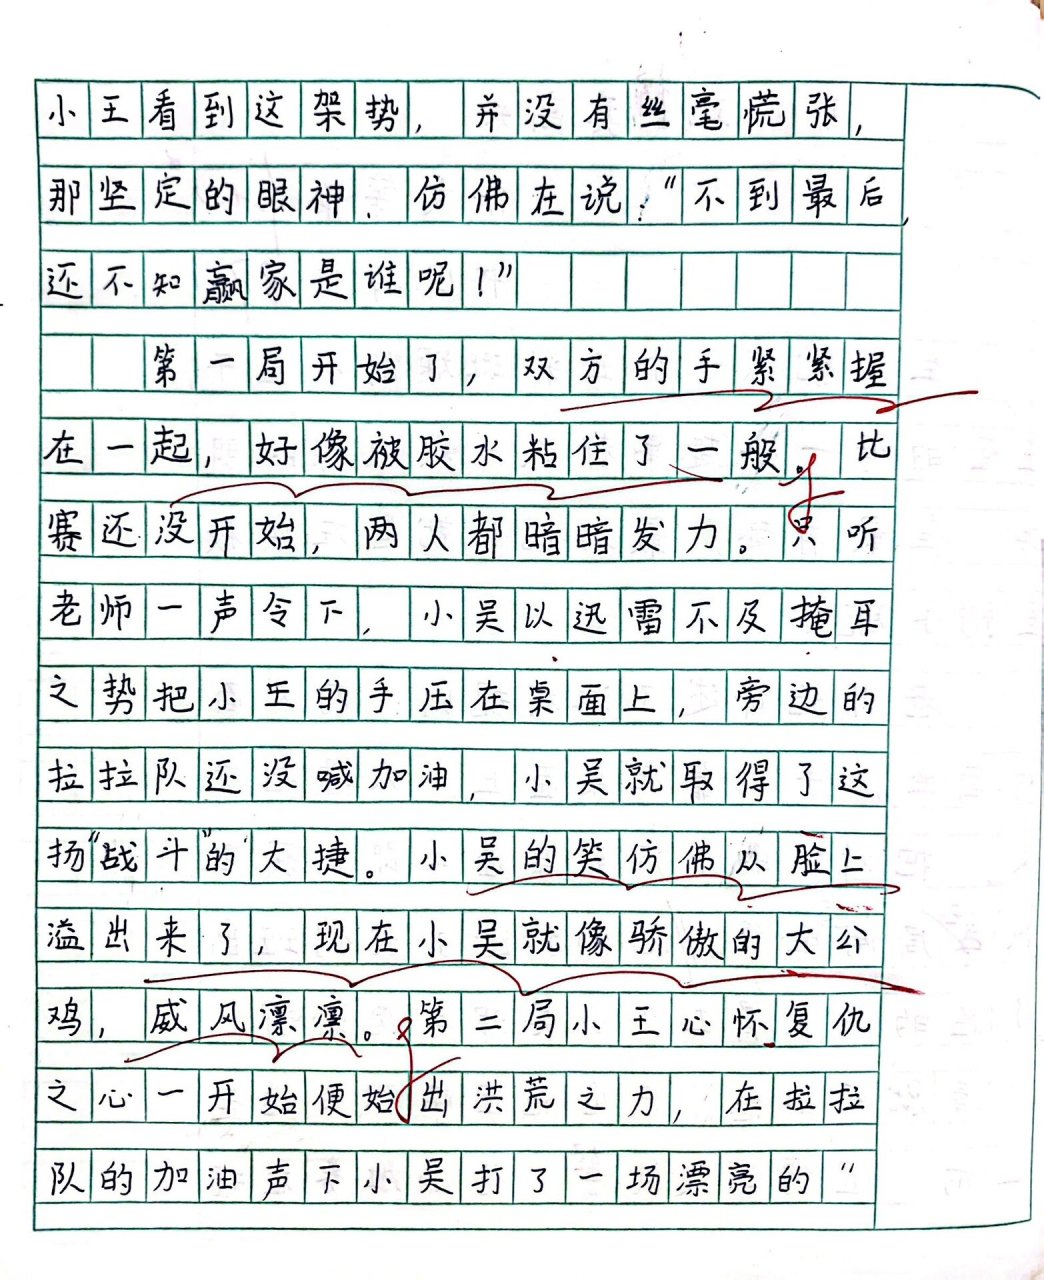 小王看到这架势，并没有丝毫慌张，
那坚定的眼神，仿佛在说：“不到最后，
还不知赢家是谁呢！”
第一局开始了，双方的手紧紧握
在一起，好像被胶水粘住了一般。比
赛还没开始，两人都暗暗发力。只听
老师一声令下，小吴以迅雷不及掩耳
之势把小王的手压在桌面上，旁边的
拉拉队还没喊加油，小吴就取得了这
扬“战斗”的大捷。小吴的笑仿佛从脸上
溢出来了，现在小吴就像骄傲的大公
鸡，威风凛凛。第二局小王心怀复仇
之心一开始便始出洪荒之力，在拉拉
队的加油声下小吴打了一场漂亮的“